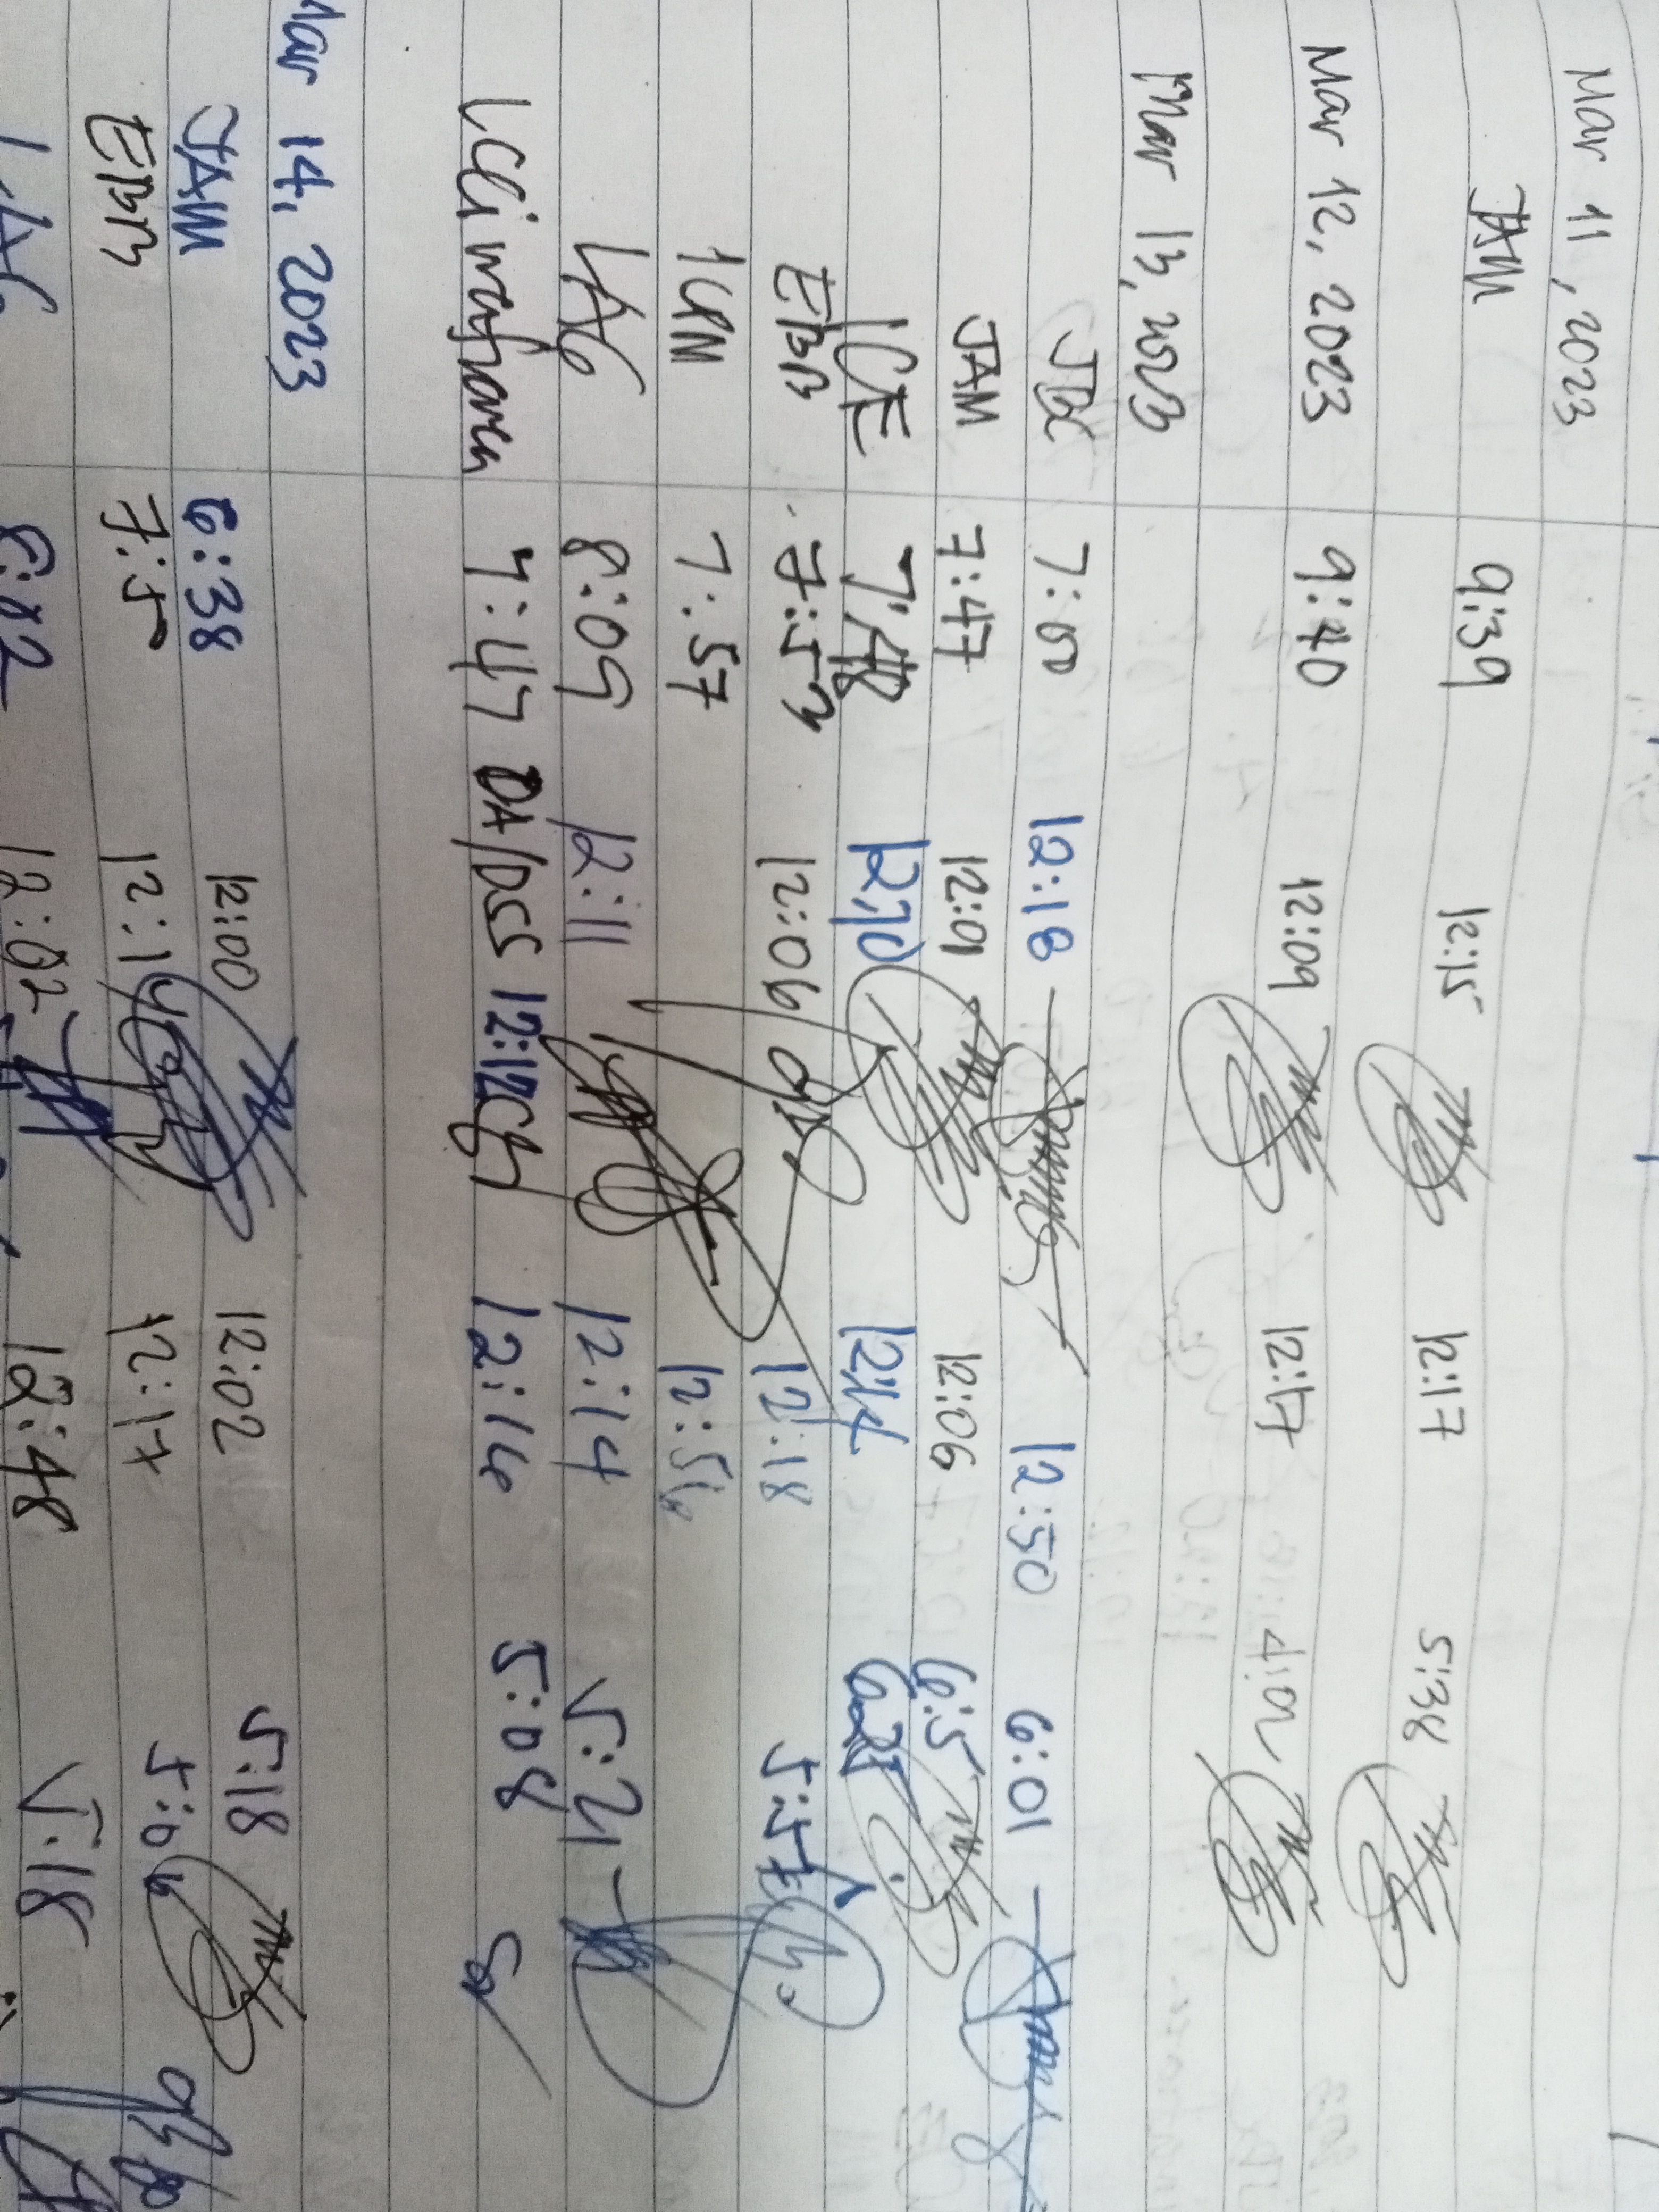 Mar 11, 2023
JAM 9:39 12:15 12:17 5:38
Mar 12, 2023 9:40 12:09 12:17
Mar 13, 2023
7:00 12:18 12:50 6:01
JAM 7:47 12:01 12:06 6:5
ICE 7:48 12:10 12:14
EBB 7:53 12:06 12:18 5:57
7:57 12:56
LAG 8:09 12:11 12:14 5:21
7:47 OA/DSS 12:12 12:14 5:08
Mar 14, 2023
JAM 6:38 12:00 12:02 5:18
EBB 12:14 12:17 5:06
LAG 8:02 12:02 12:48 5:18